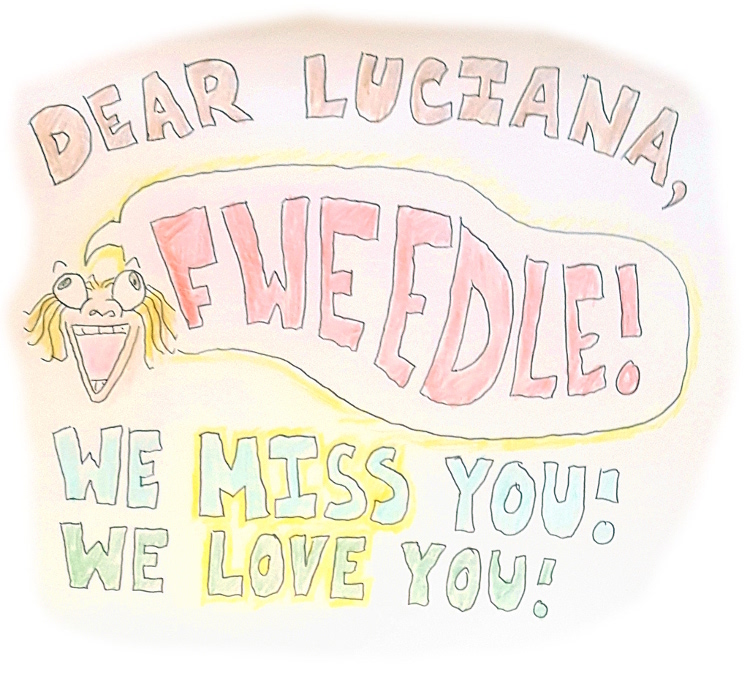 DEAR LUCIANA,
FWEEDLE!
WE MISS YOU!
WE LOVE YOU!